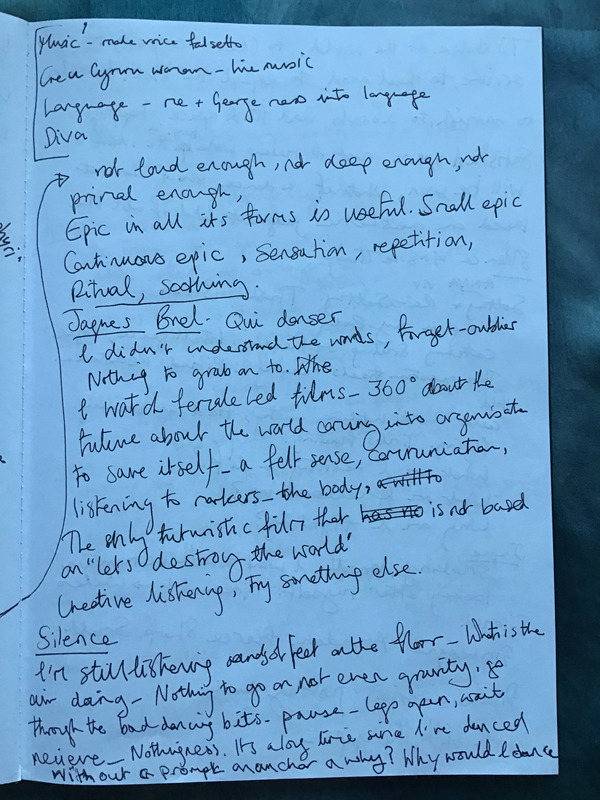 Music' - male voice falsetto
Cymru woman - live music
Language - me + George mess into language
Diva
not loud enough, not deep enough, not
primal enough,
Epic in all its forms is useful. Small epic
Continuous epic, Sensation, repetition,
Ritual, Soothing.
Jaques Brel. Qui danser
I didn't understand the words, forget-oublier
Nothing to grab on to.
I watch female led films - 360° about the
future about the world coming into organisate
to save itself - a felt sense, communiation,
listening to markers - the body, a will to
The only futuristic film that has no is not based
on "let's destroy the world'
Creative listening, Try something else.
Silence
I'm still listening sounds of feet on the floor - What is the
air doing - Nothing to go on not even gravity. go
through the bad dancing bits - pause - legs open, wait
recieve - Nothingness. Its a long time since I've danced
without a prompt an anchor a why? Why would I dance